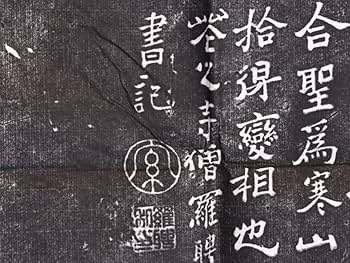 合聖爲寒山
拾得變相也
花之寺僧羅聘
書記